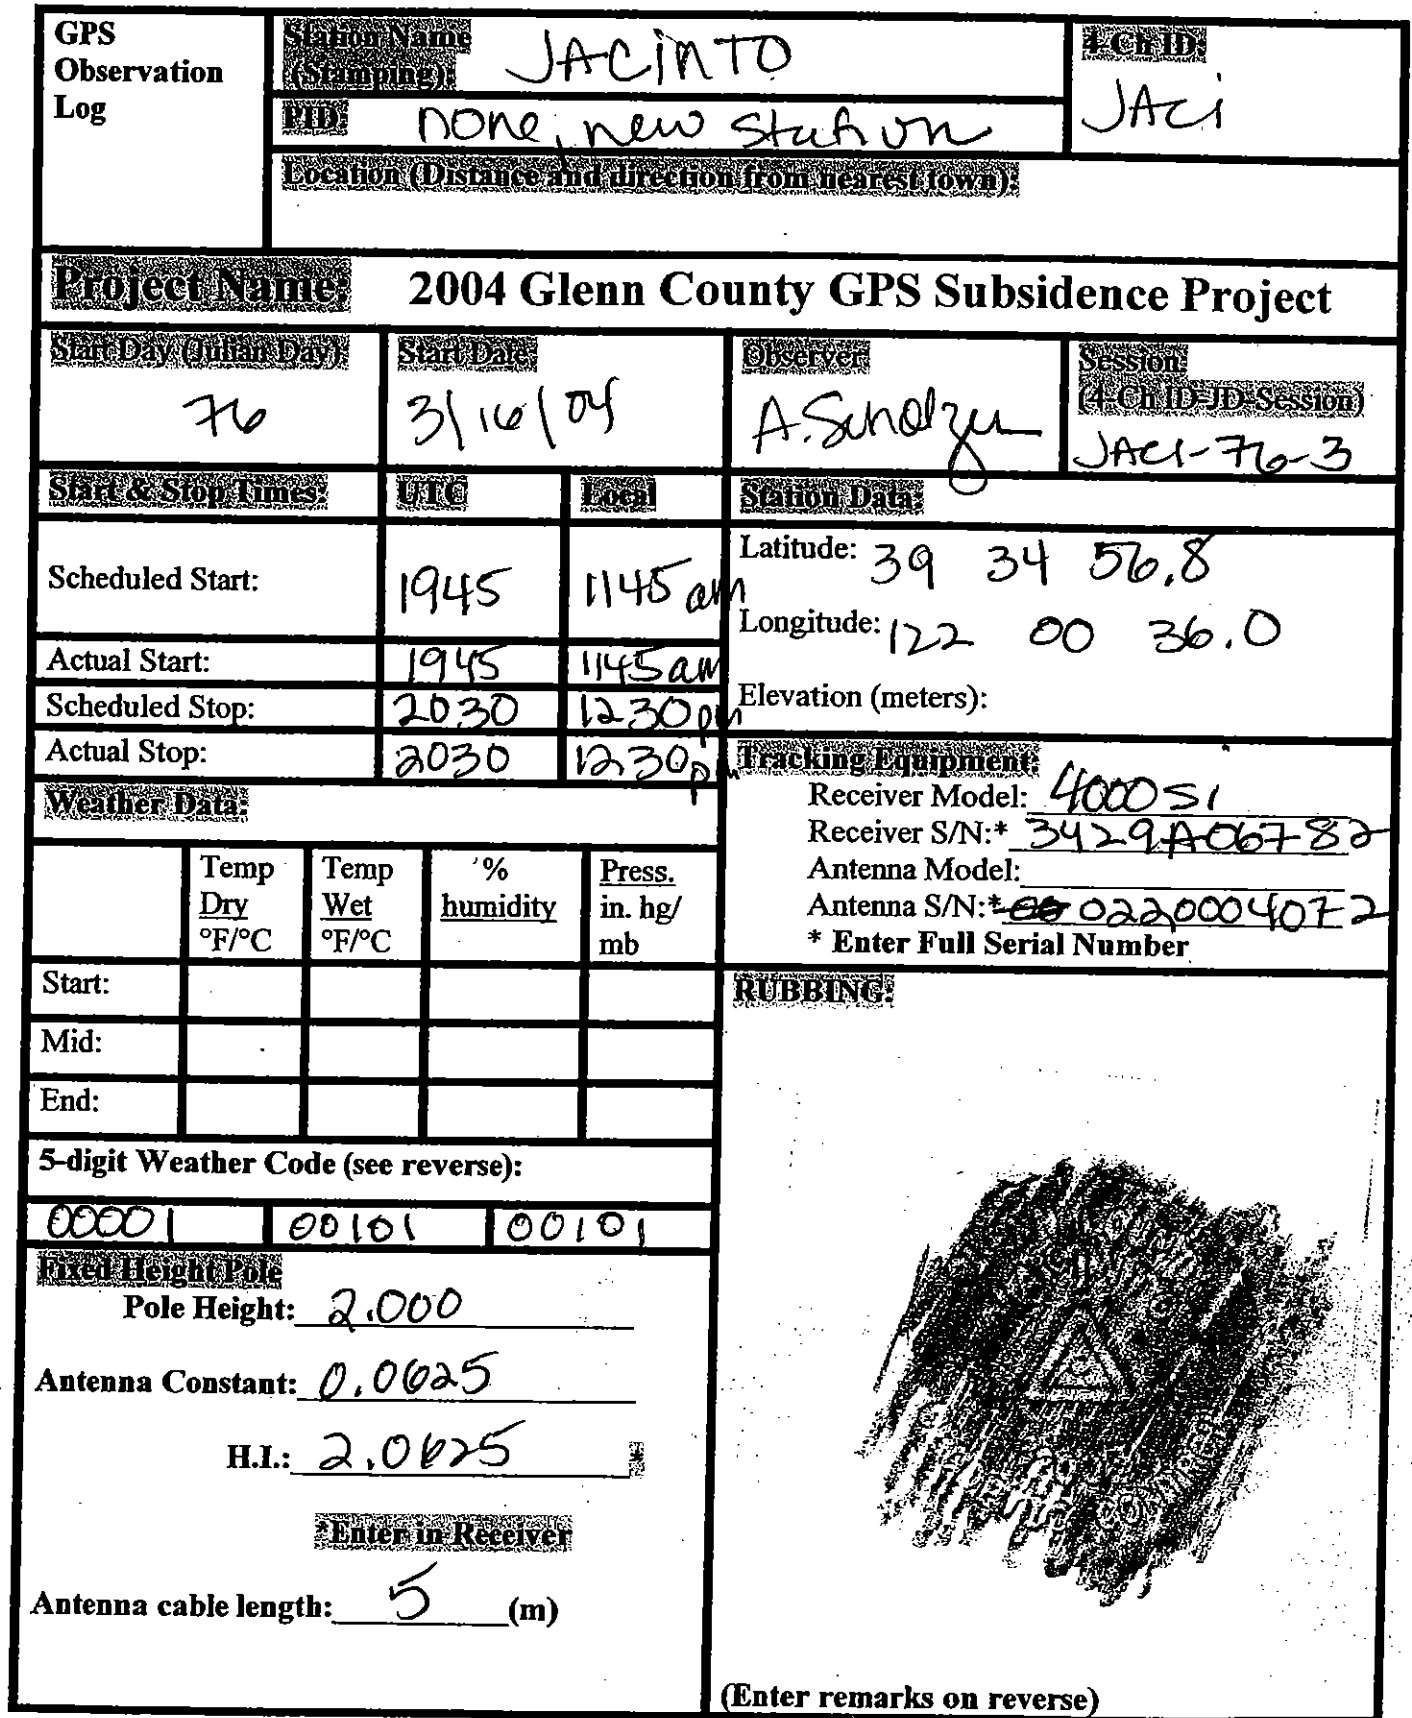 GPS
Observation
Log
Station Name
(Stamping):
JACINTO
4-Ch ID:
JACI
PID: none, new station
Location (Distance and direction from nearest town):
Project Name: 2004 Glenn County GPS Subsidence Project
Start Day (Julian Day)
76
Start Date
3/16/04
Observer
A.
Session:
(4-Ch ID-JD-Session)
JACI-76-3
Start & Stop Times: UTC Local
Scheduled Start: 1945 1145 am
Actual Start: 1945 1145 am
Scheduled Stop: 2030 1230 pm
Actual Stop: 2030 1230 pm
Station Data:
Latitude: 39 34 56.8
Longitude: 122 00 36.0
Elevation (meters):
Tracking Equipment:
Receiver Model: 4000 SI
Receiver S/N:* 3429A06782
Antenna Model:
Antenna S/N:* 0220004072
* Enter Full Serial Number
Weather Data:
Temp
Dry
°F/°C
Temp
Wet
°F/°C
%
humidity
Press.
in. hg/
mb
Start:
Mid:
End:
5-digit Weather Code (see reverse):
00001 00101 00101
Fixed Height Pole
Pole Height: 2.000
Antenna Constant: 0.0625
H.I.: 2.0625 *
*Enter in Receiver
Antenna cable length: 5 (m)
RUBBING:
(Enter remarks on reverse)